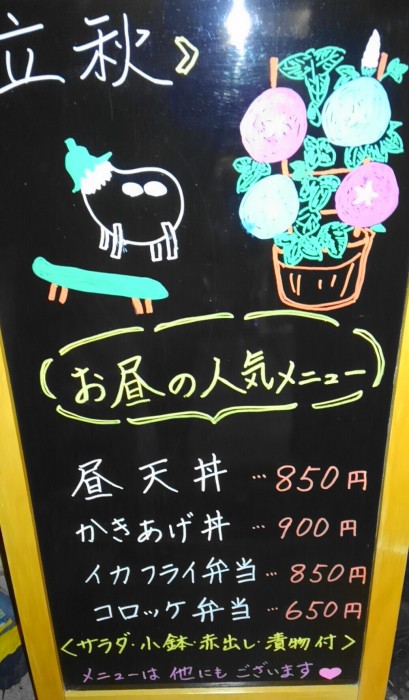 立秋》
お昼の人気メニュー
昼天丼…850円
かきあげ丼…900円
イカフライ弁当…850円
コロッケ弁当…650円
<サラダ・小鉢・赤出し・漬物付>
メニューは他にもございます♥